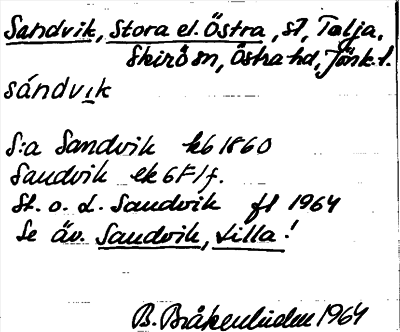 Sandvik, Stora el. Östra, st, Talja,
Skirö sn, Östra hd, Jönk.l.
sándvik
S:a Sandvik kb 1860
Sandvik ek 6F/f.
St. o. L. Sandvik fl 1964
Se äv. Sandvik, Lilla!
B. Bråkenhielm 1964